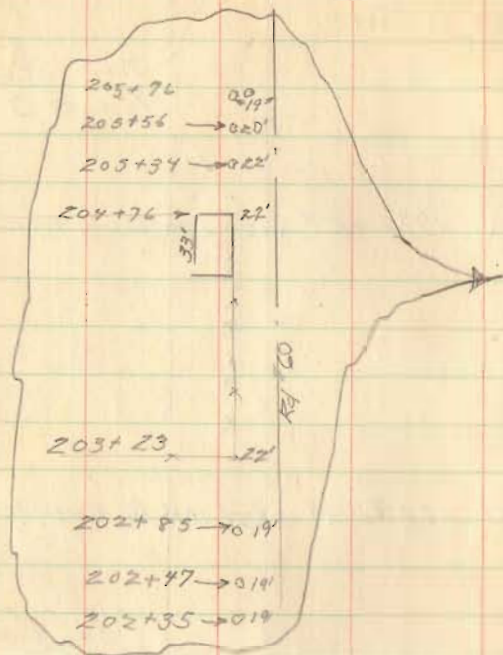 205+76 19'
205+56 → 20'
205+34 → 22'
204+76 22'
33'
Rd 60
203+23 22'
202+85 → 19'
202+47 → 19'
202+35 → 19